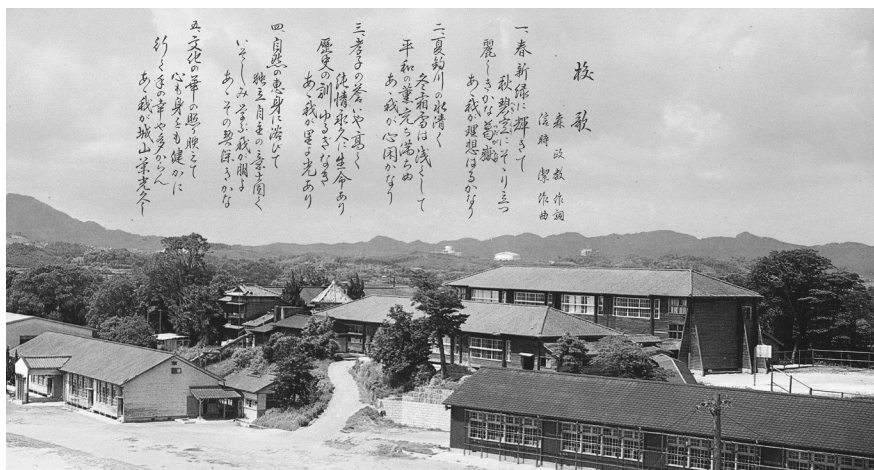 校歌
森政教作詞
信時潔作曲
一、春新緑に輝きて
秋碧空にそゝり立つ
麗しきかな
あゝ我が理想はるかなり
二、夏釣川の水清く
冬霜雪は浅くして
平和の薫充ち満ちぬ
あゝ我が心閑かなり
三、孝子の誉いや高く
純情永久に生命あり
歴史の訓ゆるぎなき
あゝ我が里よ光あり
四、自然の恵身に浴びて
独立自主の意志固く
いそしみ学ぶ我が朋よ
あゝその契深きかな
五、文化の華の照り映えて
心も身をも健かに
行く手の幸や多からん
あゝ我が城山栄光久し